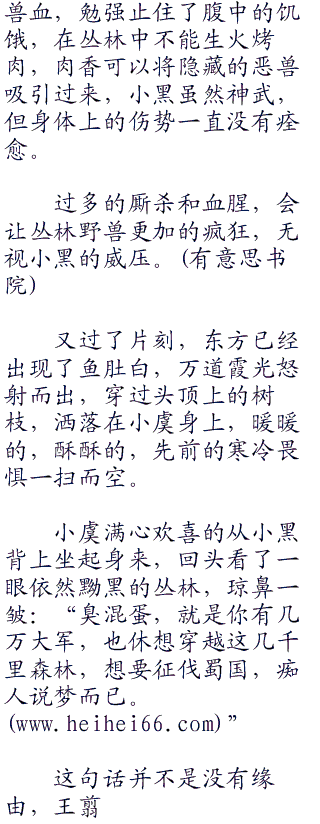 兽血，勉强止住了腹中的饥
饿，在丛林中不能生火烤
肉，肉香可以将隐藏的恶兽
吸引过来，小黑虽然神武，
但身体上的伤势一直没有痊
愈。
过多的厮杀和血腥，会
让丛林野兽更加的疯狂，无
视小黑的威压。(有意思书
院)
又过了片刻，东方已经
出现了鱼肚白，万道霞光怒
射而出，穿过头顶上的树
枝，洒落在小虞身上，暖暖
的，酥酥的，先前的寒冷畏
惧一扫而空。
小虞满心欢喜的从小黑
背上坐起身来，回头看了一
眼依然黝黑的丛林，琼鼻一
皱：“臭混蛋，就是你有几
万大军，也休想穿越这几千
里森林，想要征伐蜀国，痴
人说梦而已。
(www.heihei66.com)”
这句话并不是没有缘
由，王翦